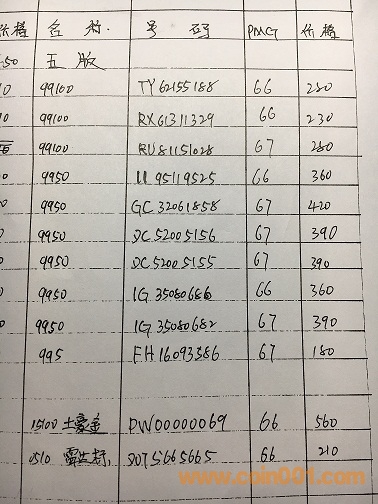 价格 名称. 号码 PMG 价格
50 五版
0 99100 TY62155188 66 280
0 99100 RX61311329 66 230
99100 RU81151028 67 280
0 9950 U95119525 66 360
9950 GC32061858 67 420
9950 DC52005156 67 390
0 9950 DC52005155 67 390
0 9950 IG35080686 66 360
0 9950 IG35080682 67 390
995 FH16093586 67 180
15100 土豪金 DW00000069 66 560
0510 雷达标 2075665665 66 210
www.coin001.com